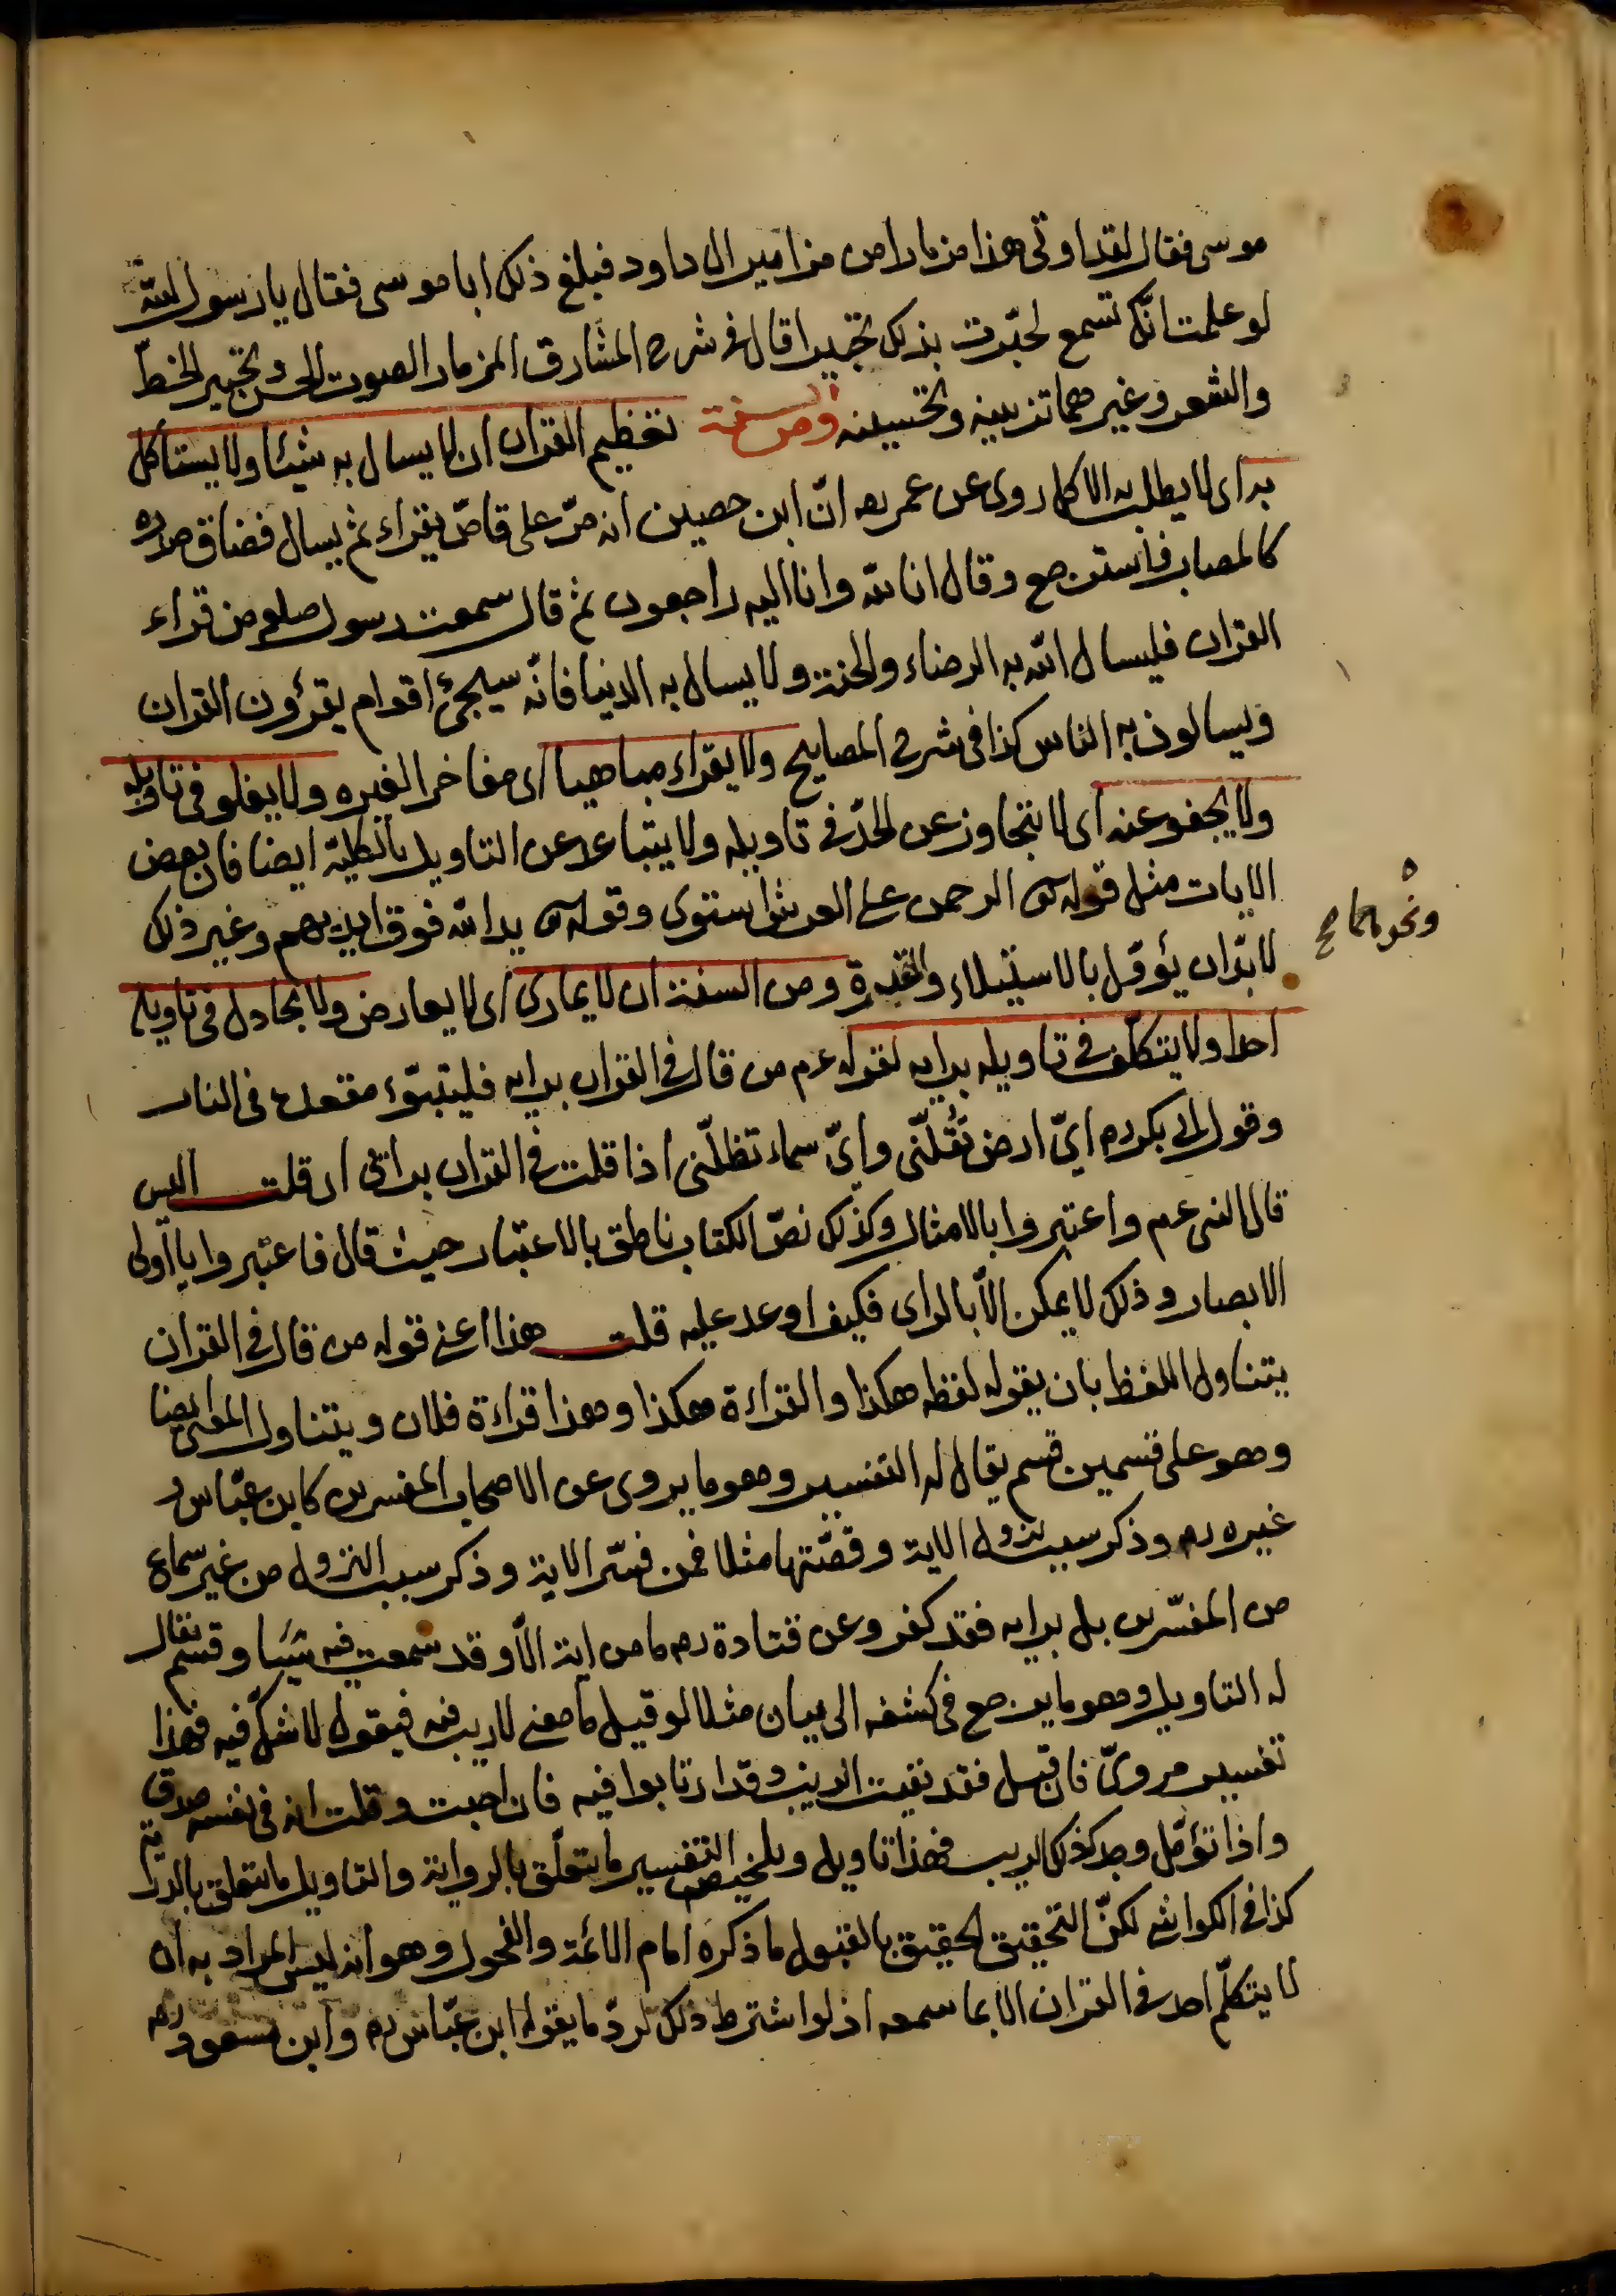 موسى فقال لقد اوتى هذا مزمارا من مزامير ال داود فبلغ ذلك ابا موسى فقال يا رسول الله
لو علمت انّك تسمع لحبّرت بذلك تحبيرا قال فى شرح المشارق المزمار الصوت الحسن وتحبير الخطّ
والشعر وغيرهما تزيينه وتحسينه ومن السنة تعظيم القران ان لا يسال به شيئا ولا يستأكل
به اى لا يطلب به الاكل روى عن عمر رضه انّ ابن حصين انه مرّ على قاصّ يقراء ثم يسال فضاق صدره
كالمصاب فاسترجع وقال انا لله وانا اليه راجعون ثم قال سمعت رسول صلعم من قراء
القران فليسال الله به الرضاء والجنة ولا يسال به الدنيا فانّه سيجئ اقوام يقرؤن القران
ويسالون به الناس كذا فى شرح المصابيح ولا يقراء مباهيا اى مفاخرا لغيره ولا يغلو فى تاويله
ولا يجفو عنه اى لا يتجاوز عن الحدّ فى تاويله ولا يتباعد عن التاويل بالكليّة ايضا فان بعض
الايات مثل قوله تعالى الرحمن على العرش استوى وقوله تعالى يد الله فوق ايديهم وغير ذلك
ونحوهما صح
لا بدّ ان يؤوّل بالاستيلاء والقدرة ومن السنة ان لا يمارى اى لا يعارض ولا يجادل فى تاويله
احدا ولا يتكلّف فى تاويله برايه لقوله عم من قال فى القران برايه فليتبوّء مقعده فى النار
وقول ابى بكر رضه اىّ ارض تقلّنى واىّ سماء تظلّنى اذا قلت فى القران براى ان قلت اليس
قال النبى عم واعتبروا بالامثال وكذلك نصّ الكتاب ناطق بالاعتبار حيث قال فاعتبروا يا اولى
الابصار وذلك لا يمكن الّا بالراى فكيف اوعد عليه قلت هذا اعنى قوله من قال فى القران
يتناول اللفظ بان يقول لفظه هكذا والقراءة هكذا وهذا قراءة فلان ويتناول المعنى ايضا
وهو على قسمين قسم يقال له التفسير وهو ما يروى عن الاصحاب المفسرين كابن عبّاس و
غيره رضه وذكر سبب نزول الاية وقصّتها مثلا فمن فسّر الاية وذكر سبب النزول من غير سماع
من المفسّرين بل برايه فقد كفر وعن قتادة رضه ما من اية الّا وقد سمعت فيه شيئا وقسم يقال
له التاويل وهو ما يرجع فى كشفه الى بيان مثلا لو قيل ما معنى لا ريب فيه فيقول لا شكّ فيه فهذا
تفسير مروىّ فان قيل فقد نفيت الريب وقد ارتابوا فيه فان اجبت وقلت انه فى نفسه صدق
واذا تؤمّل وجد كذلك لا ريب فهذا تاويل وتلخيص التفسير ما يتعلّق بالرواية والتاويل ما يتعلق بالدراية
كذا فى الكواشى لكنّ التحقيق الحقيق بالقبول ما ذكره امام الائمة والفحول وهو انه ليس المراد به ان
لا يتكلّم احد فى القران الا بما سمعه اذ لو اشترط ذلك لردّ ما يقول ابن عبّاس رضه وابن مسعود رضه